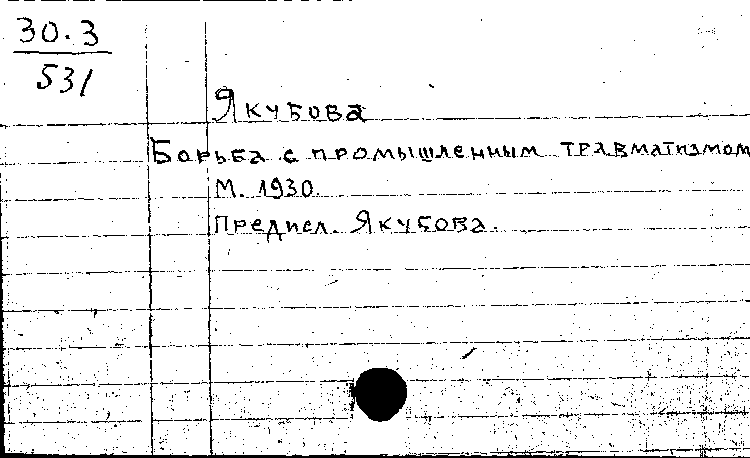 30.3
531
Якубова
Борьба с промышленным травматизмом
М. 1930.
Предисл. Якубова.